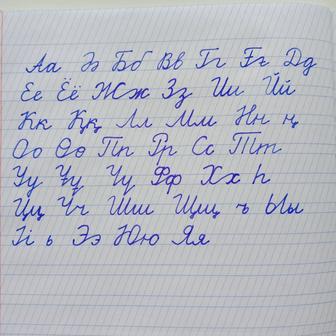 Аа Әә Бб Вв Гг Ғғ Дд
Ее Ёё Жж Зз Ии Йй
Кк Ққ Лл Мм Нн ң
Оо Өө Пп Рр Сс Тт
Уу Ұұ Үү Фф Хх һ
Цц Чч Шш Щщ ъ Ыы
Іі ь Ээ Юю Яя